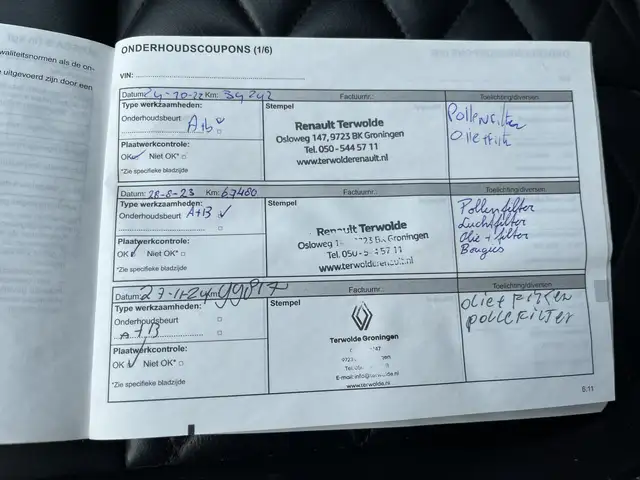 waliteitsnormen als de on-
uitgevoerd zijn door een
ONDERHOUDSCOUPONS (1/6)
VIN:
Datum: 24-10-22 Km: 39242 Factuurnr.: Toelichting/diversen
Type werkzaamheden: Stempel
Onderhoudsbeurt
A+b
Plaatwerkcontrole:
OK Niet OK*
*Zie specifieke bladzijde
Renault Terwolde
Osloweg 147, 9723 BK Groningen
Tel. 050 - 544 57 11
www.terwolderenault.nl
Pollenfilter
Datum: 28-8-23 Km: 67480 Factuurnr.: Toelichting/diversen
Type werkzaamheden: Stempel
Onderhoudsbeurt A+B
Plaatwerkcontrole:
OK Niet OK*
*Zie specifieke bladzijde
Renault Terwolde
Osloweg 1 723 BK Groningen
Tel. 050 - 5 4 57 11
www.terwolderenault.nl
Pollenfilter
Luchtfilter
Olie + filter
Bougies
Datum: 27-11-24 Km Factuurnr.: Toelichting/diversen
Type werkzaamheden: Stempel
Onderhoudsbeurt
A+B
Plaatwerkcontrole:
OK Niet OK*
*Zie specifieke bladzijde
Terwolde Groningen
47
9723 ngen
Tel.
E-mail: info@terwolde.nl
www.terwolde.nl
6.11